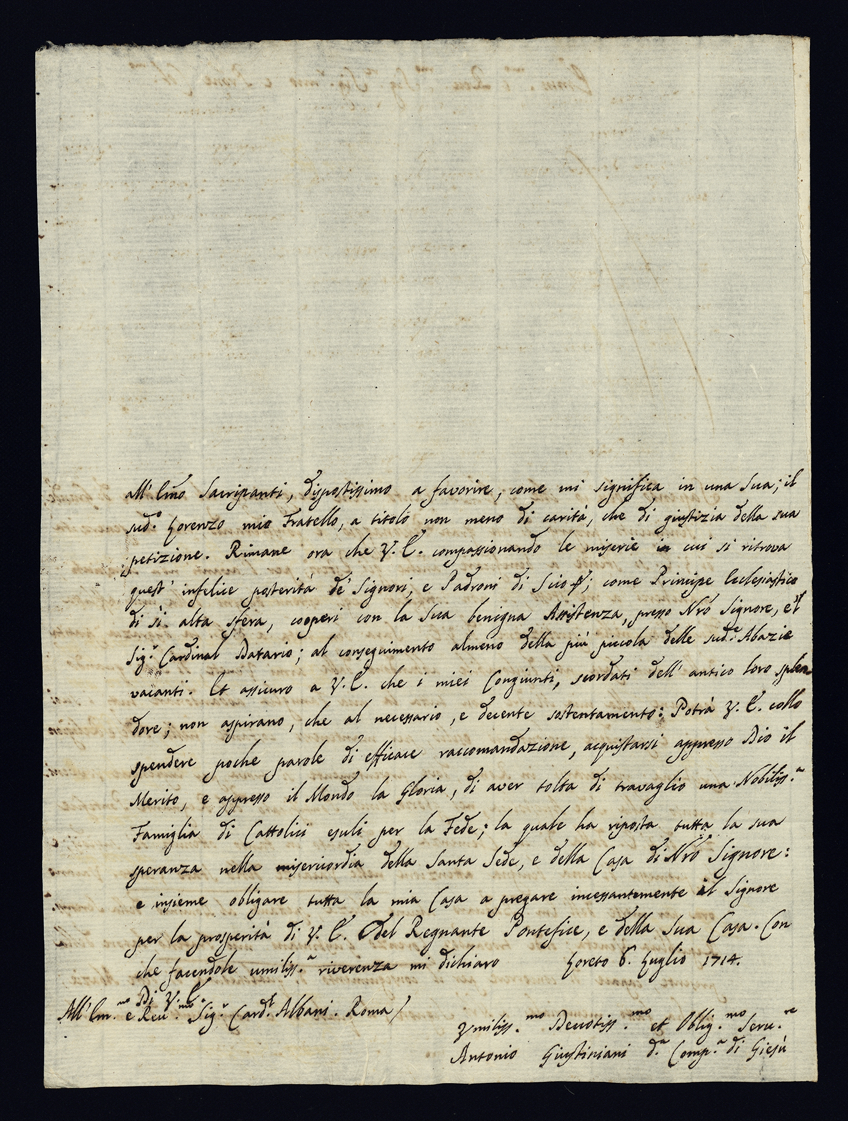 all' Emo Sacripanti, dispostissimo a favorire, come mi significa in una sua; il
sud.º Lorenzo mio Fratello, a titolo non meno di carità, che di giustizia della sua
petizione. Rimane ora che V. E. compassionando le miserie in cui si ritrova
quest' infelice posterità de' Signori, e Padroni di Scio; come Principe Ecclesiastico
di sì alta sfera, cooperi con la sua benigna Assistenza, presso Nrõ Signore, e 'l
Sig.r Cardinal Datario; al conseguimento almeno della più piccola delle sud.e Abazie
vacanti. Et assicuro a V. E. che i miei Congiunti, scordati dell' antico loro splen
dore; non aspirano, che al necessario, e decente sostentamento: Potrà V. E. collo
spendere poche parole di efficace raccomandazione, acquistarsi appresso Dio il
Merito, e appresso il Mondo la Gloria, di aver tolta di travaglio una Nobiliss.a
Famiglia di Cattolici esuli per la Fede; la quale ha riposta tutta la sua
speranza nella misericordia della Santa Sede, e della Casa di Nrõ Signore:
e insieme obligare tutta la mia Casa a pregare incessantemente il Signore
per la prosperità di V. E. del Regnante Pontefice, e della Sua Casa. Con
che facendole umiliss.a riverenza mi dichiaro Loreto 6. Luglio 1714.
Di V. E.
All' Em.mo e Rev.mo Sig.r Card.l Albani. Roma/
Vmiliss.mo Devotiss.mo et Oblig.mo Serv.re
Antonio Giustiniani d.a Comp.a di Giesù